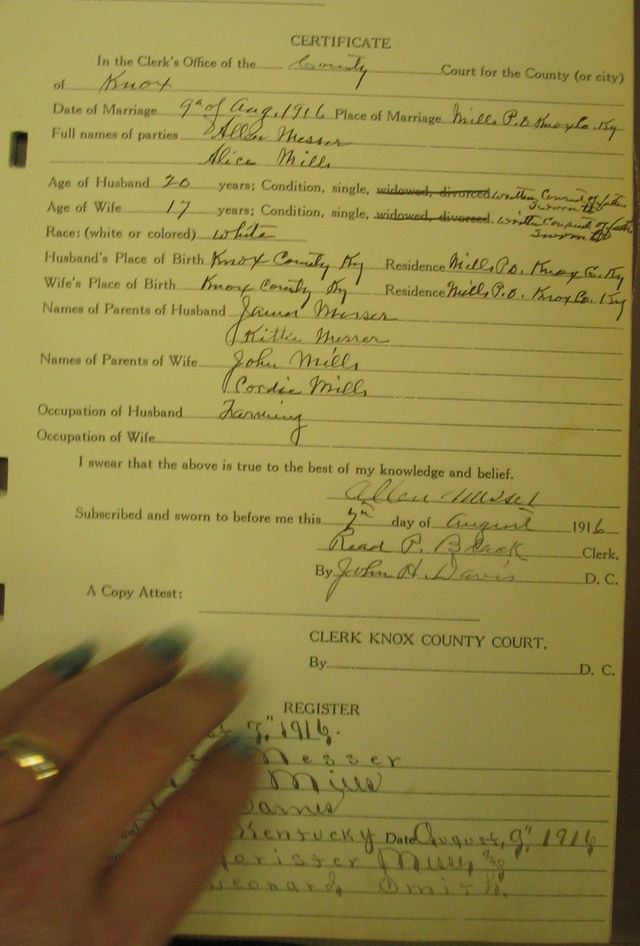 CERTIFICATE
In the Clerk's Office of the County Court for the County (or city)
of Knox
Date of Marriage 9th of Aug. 1916 Place of Marriage Mills P.O Knox Co. Ky
Full names of parties Allen Messer
Alice Mills
Age of Husband 20 years; Condition, single, widowed, divorced written Consent of father
Age of Wife 17 years; Condition, single, widowed, divorced. written Consent of father
Race: (white or colored) white
Husband's Place of Birth Knox County Ky Residence Mills P.O. Knox Co. Ky
Wife's Place of Birth Knox County Ky Residence Mills P.O. Knox Co. Ky
Names of Parents of Husband James Messer
Kittie Messer
Names of Parents of Wife John Mills
Cordie Mills
Occupation of Husband Farming
Occupation of Wife
I swear that the above is true to the best of my knowledge and belief.
Allen Messer
Subscribed and sworn to before me this 7th day of August 1916
Read P. Black Clerk,
By John H. Davis D. C.
A Copy Attest:
CLERK KNOX COUNTY COURT.
By D. C.
REGISTER
7", 1916.
Messer
Mills
Kentucky Date August, 9" 1916
Leonard Smith